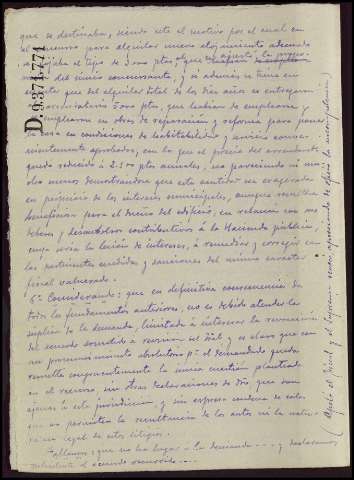 que se destinaba, siendo este el motivo por el cual en
el concurso para alquilar nuevo alojamiento adecuado
el tipo de 3.000 ptas, que
del único concursante, y si además se tiene en
cuenta que del alquiler total de los dos años se entregaron
al arrendatario 5.000 ptas, que habían de emplearse y
emplearon en obras de reparación y reforma para poner
la casa en condiciones de habitabilidad y servicio conve-
nientemente aprobadas, con lo que el precio del arrendamiento
quedó reducido a 2.500 ptas anuales, no pareciendo ni mu-
cho menos demostrándose que esta cantidad sea exagerada
en perjuicio de los intereses municipales, aunque resultase
beneficiosa para el dueño del edificio, en relación con sus
deberes y desembolsos contributivos a la Hacienda pública,
cuya sería la lesión de intereses, a remediar y corregir con
las pertinentes medidas y sanciones del mismo carácter
fiscal vulnerado.
6º Considerando: que en definitiva consecuencia de
todos los fundamentos anteriores, no es debido atender la
súplica de la demanda, limitada a interesar la revocación
del acuerdo sometido a recurso en él, y es claro que con
un pronunciamiento absolutorio pª el demandado queda
resuelta congruentemente la única cuestión planteada
en el recurso, sin otras declaraciones de
ajenas a esta jurisdicción y sin expresa condena de costas
no permitir la resultancia de los autos ni la natura-
leza legal de estos litigios.
Fallamos: que no ha lugar a la demanda .... y declaramos
subsistente el acuerdo recurrido ....
D.9.371.771